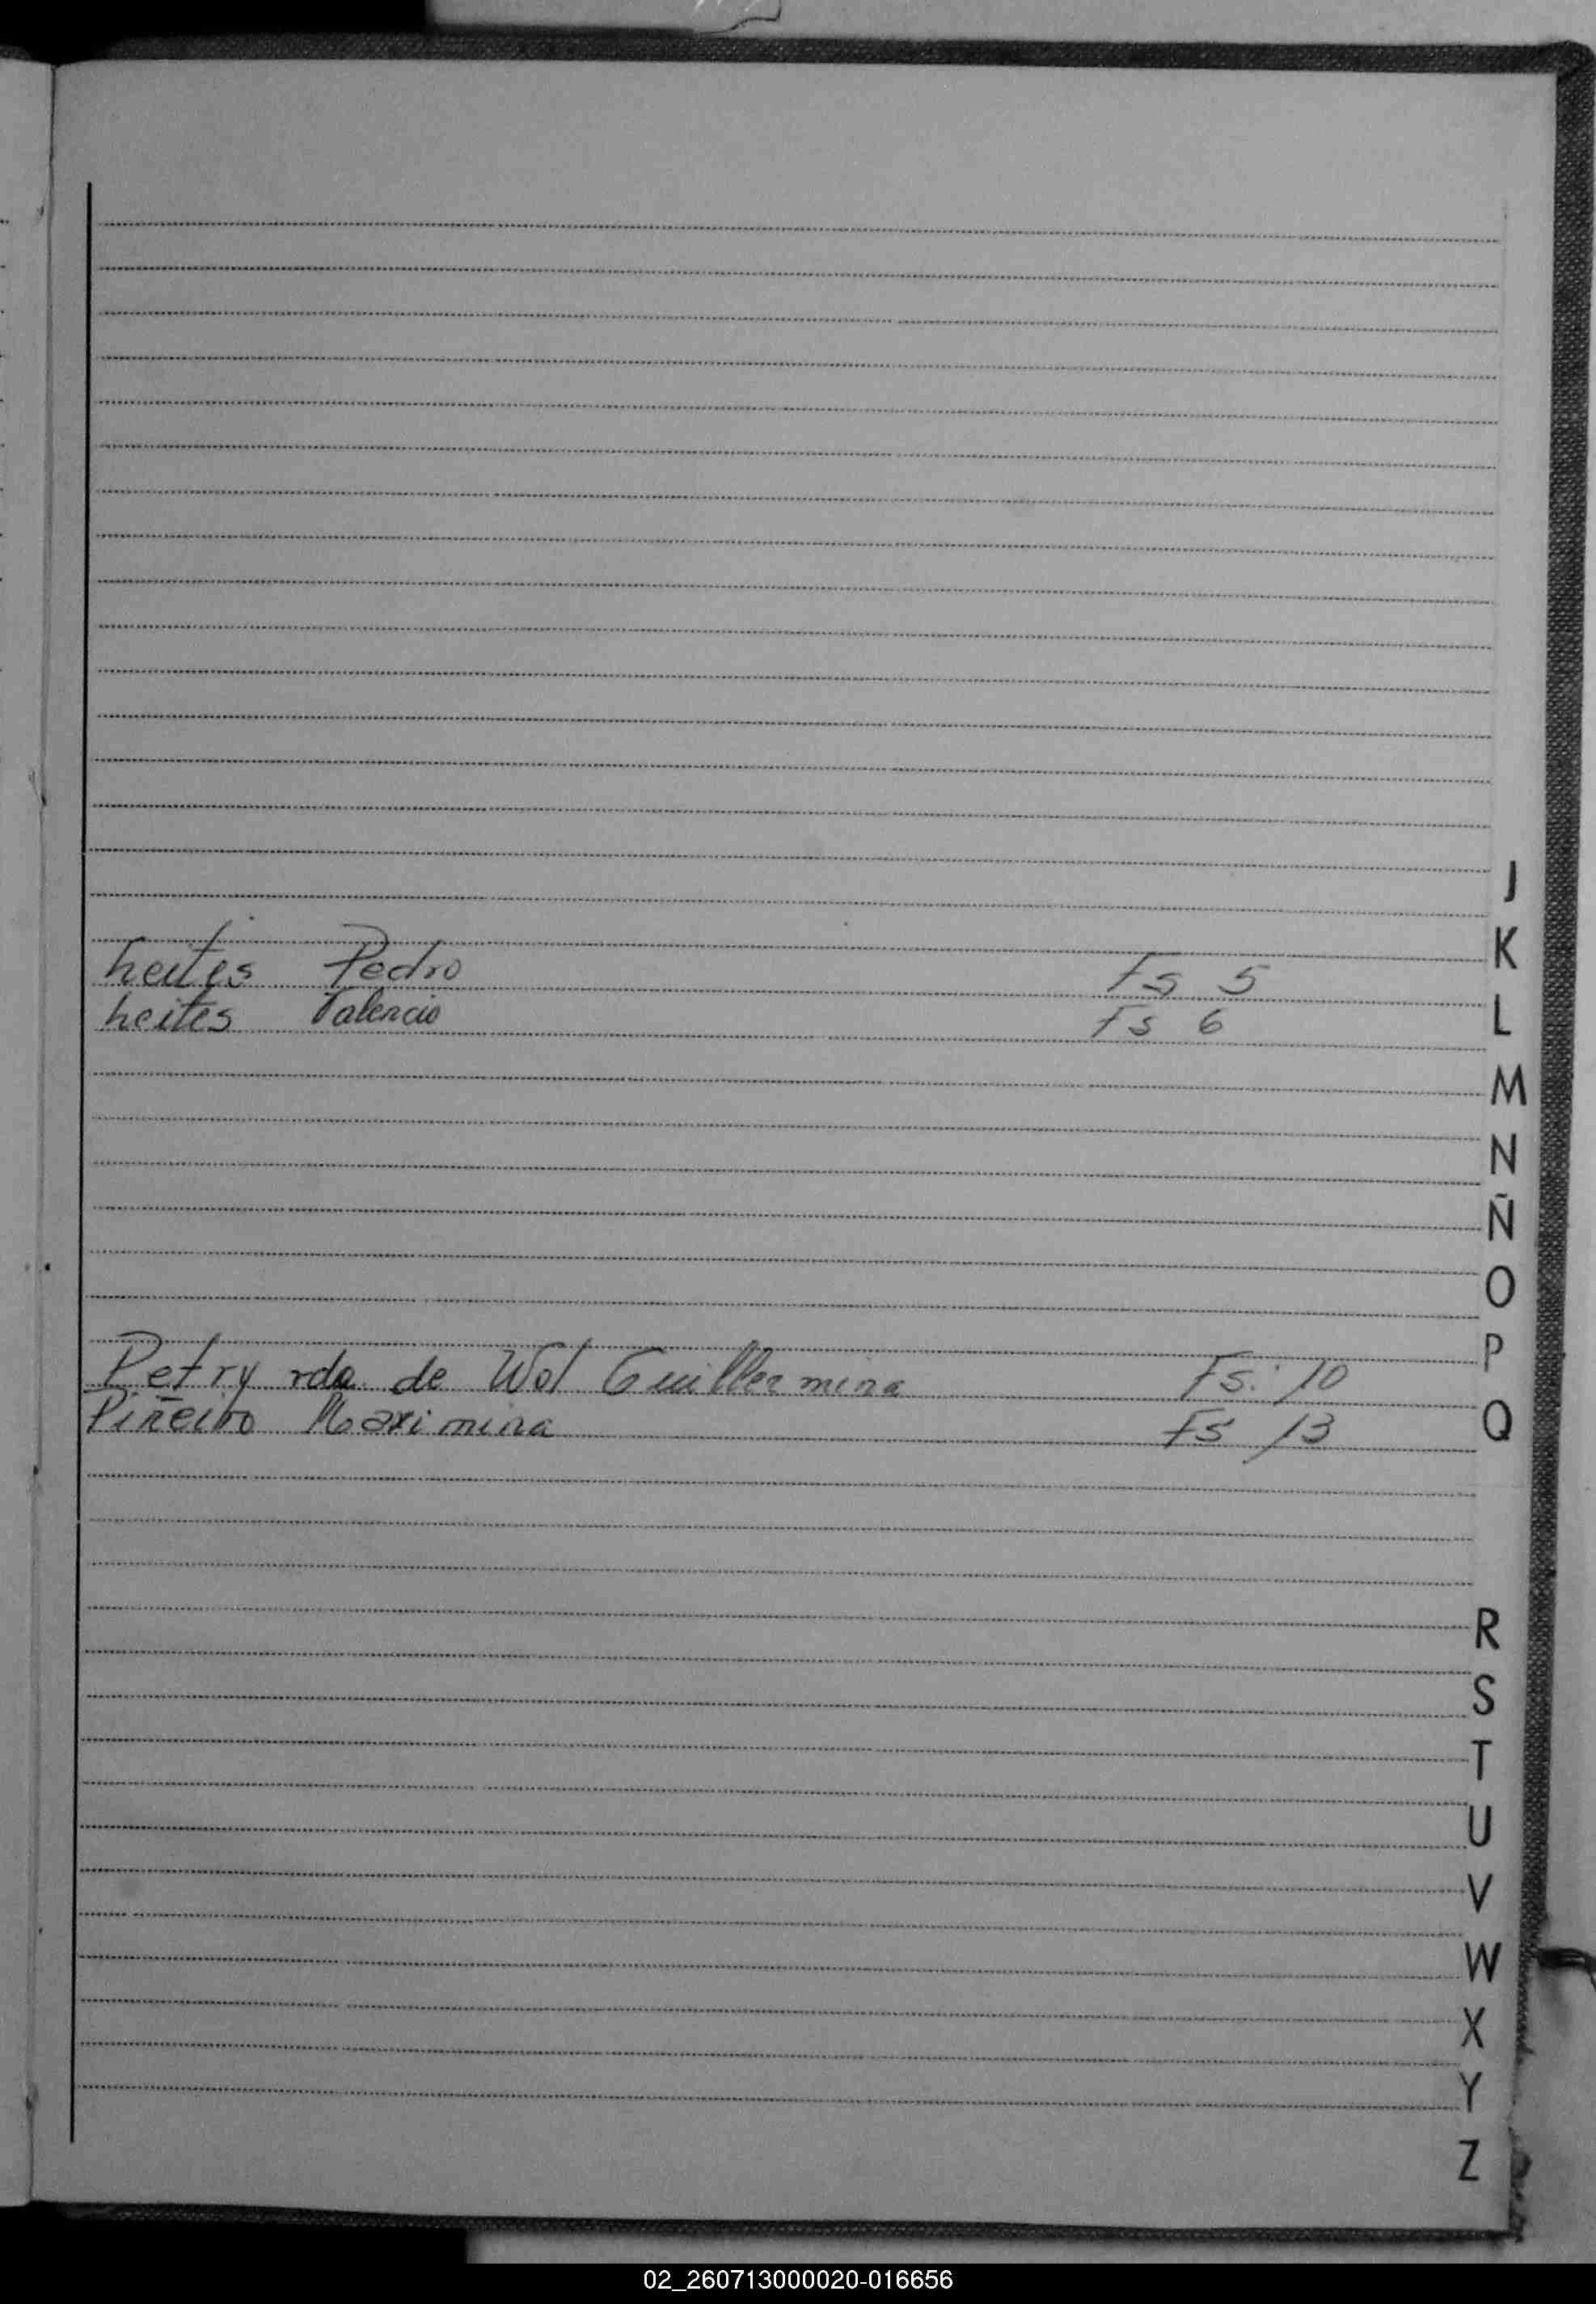 Leites Pedro Fs 5
Leites Valencio Fs 6
Petry vda. de Wol Guillermina Fs. 10
Piñeiro Maximina Fs 13
J
K
L
M
N
Ñ
O
P
Q
R
S
T
U
V
W
X
Y
Z
02_260713000020-016656